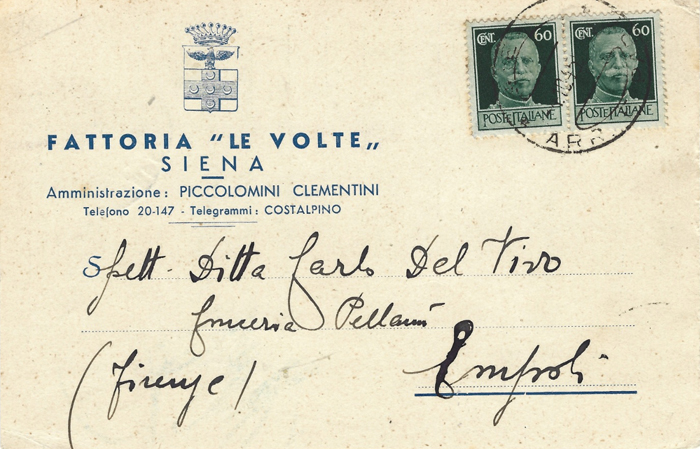 CENT. 60 CENT. 60
POSTE ITALIANE POSTE ITALIANE
ARR.
FATTORIA "LE VOLTE„
SIENA
Amministrazione: PICCOLOMINI CLEMENTINI
Telefono 20-147 - Telegrammi: COSTALPINO
Spett. Ditta Carlo Del Vivo
Conceria Pellami
Empoli
(Firenze)